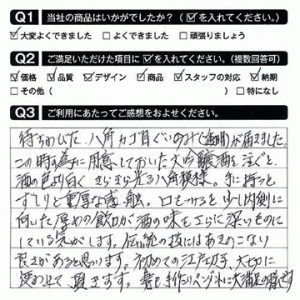 Q1 当社の商品はいかがでしたか？（☑を入れてください。）
☑大変よくできました □よくできました □頑張りましょう
Q2 ご満足いただけた項目に☑を入れてください。（複数回答可）
☑価格 ☑品質 ☑デザイン ☑商品 ☑スタッフの対応 ☑納期
□その他（ ） □特になし
Q3 ご利用にあたってご感想をおよせください。
待ちわびた、八角カゴ目ぐいのみ（透明）が届きました。
この時の為に用意しておいた大吟醸酒を注ぐと、
酒の色より白くきらきら光る八角模様。手に持つと
ずしりと重厚な感触。口をつけると少し内側に
向いた厚めの飲口が酒の味をさらに深いものに
している気がします。伝統の技にはあきのこない
良さがあると思います。初めての江戸切子、大切に
使わせて頂きます。妻も手作りペンダントに大満足の様です